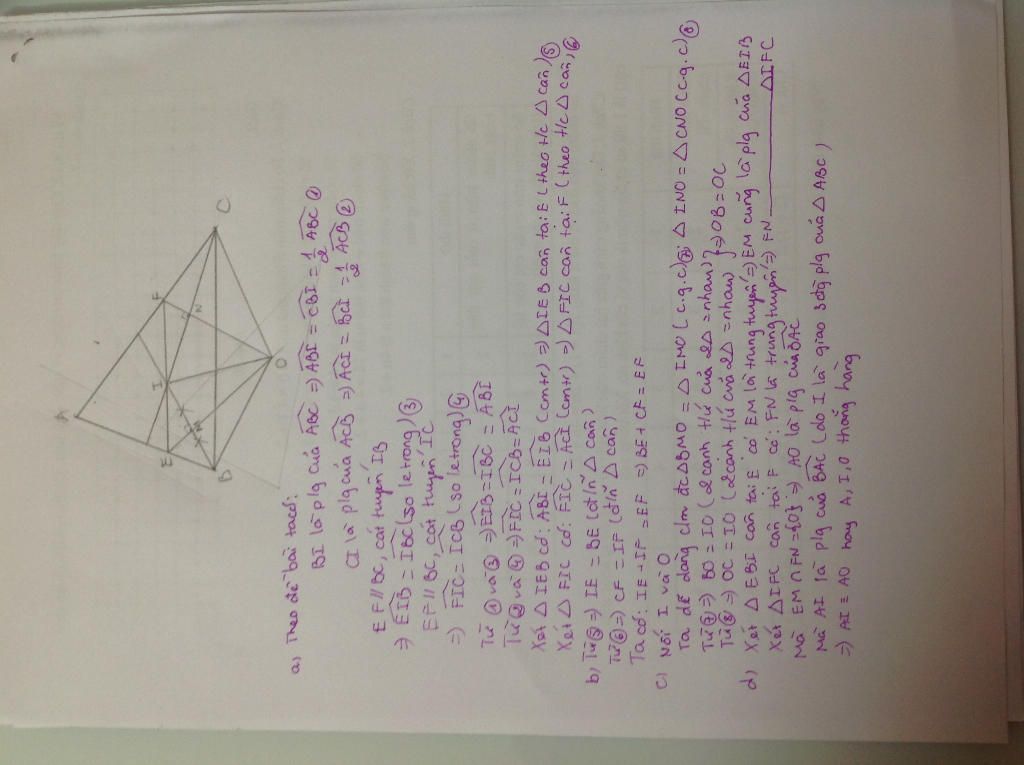 A
E
I
F
M
N
B
C
O
a) Theo đề bài ta có:
BI là p/g của ABC => ABI = CBI = 1/2 ABC ①
CI là p/g của ACB => ACI = BCI = 1/2 ACB ②
EF // BC, cát tuyến IB
=> EIB = IBC (so le trong) ③
EF // BC, cát tuyến IC
=> FIC = ICB (so le trong) ④
Từ ① và ③ => EIB = IBC = ABI
Từ ② và ④ => FIC = ICB = ACI
Xét △ IEB có: ABI = EIB (cmtr) => △IEB cân tại E (theo t/c △ cân) ⑤
Xét △ FIC có: FIC = ACI (cmtr) => △FIC cân tại F (theo t/c △ cân) ⑥
b) Từ ⑤ => IE = BE (đ/n △ cân)
Từ ⑥ => CF = IF (đ/n △ cân)
Ta có: IE + IF = EF => BE + CF = EF
c) Nối I và O
Ta dễ dàng c/m đc △BMO = △IMO (c.g.c) ⑦; △INO = △CNO (c.g.c) ⑧
Từ ⑦ => BO = IO (2 cạnh t/ứ của 2△ = nhau) } => OB = OC
Từ ⑧ => OC = IO (2 cạnh t/ứ của 2△ = nhau)
d) Xét △ EBI cân tại E có EM là trung tuyến => EM cũng là p/g của △EIB
Xét △IFC cân tại F có: FN là trung tuyến => FN ______ △IFC
Mà EM ∩ FN = {O} => AO là p/g của BAC
Mà AI là p/g của BAC (do I là giao 3 đg p/g của △ ABC)
=> AI ≡ AO hay A, I, O thẳng hàng